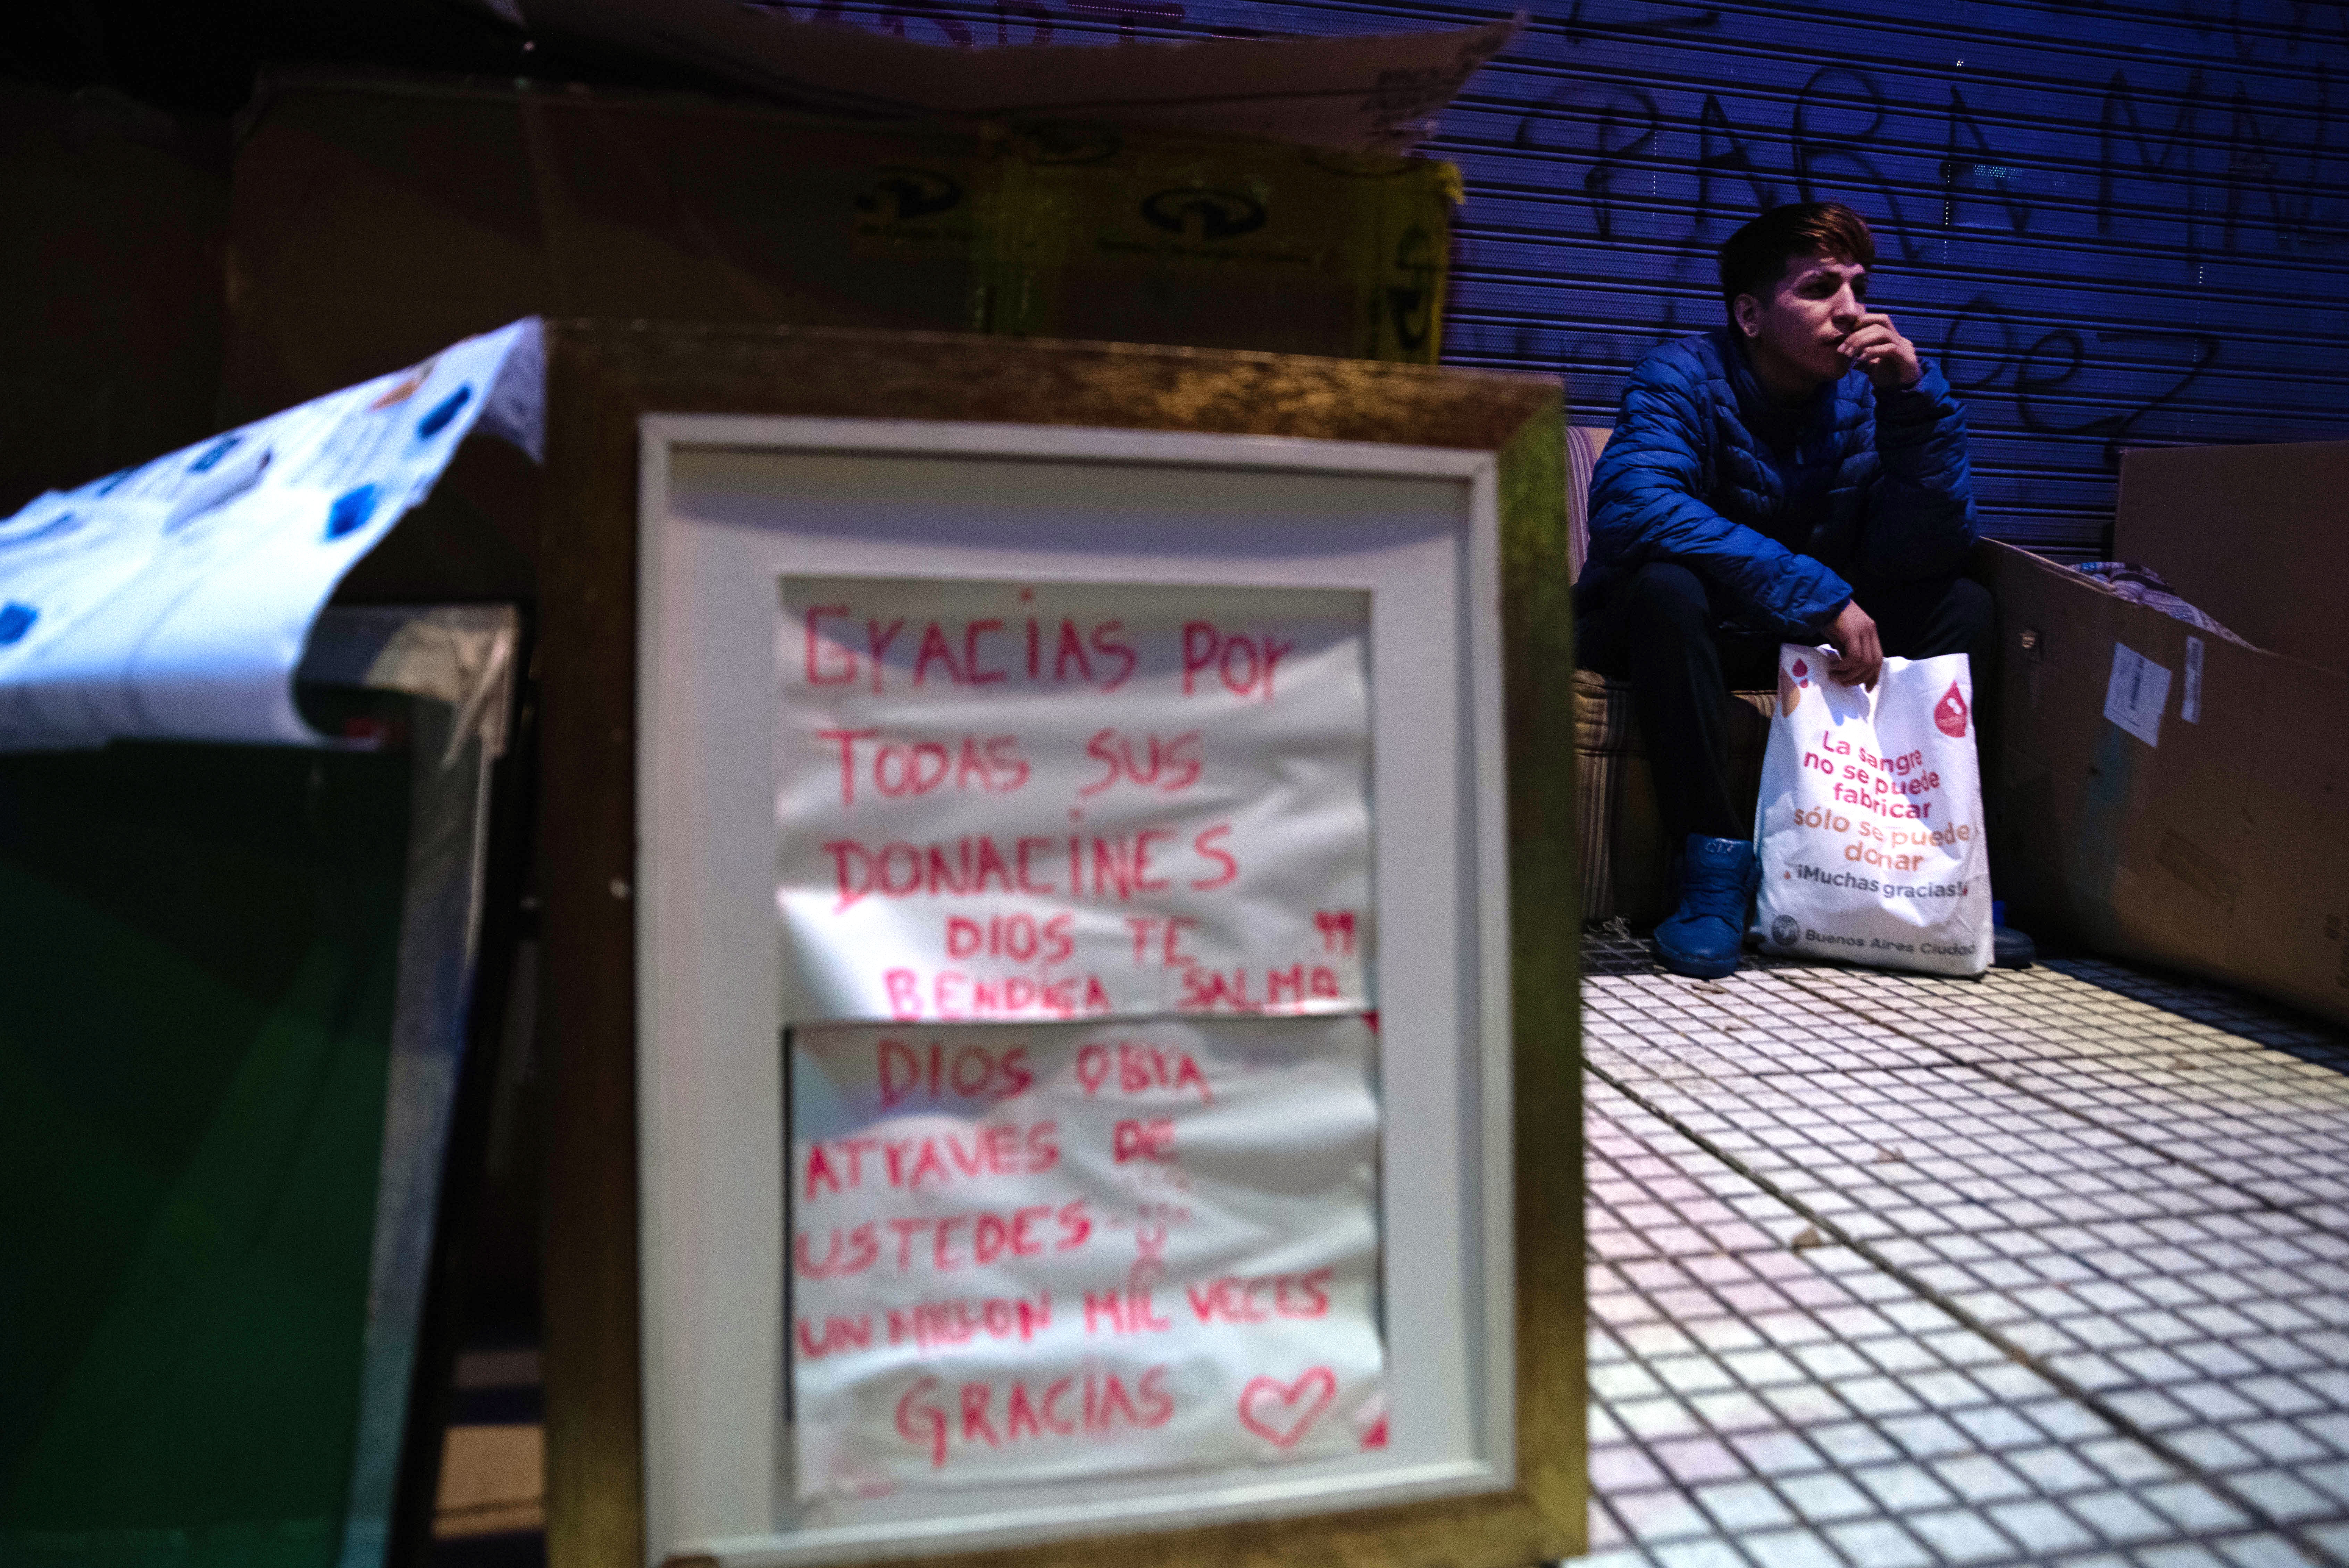 PARA MAXI
GRACIAS POR
TODAS SUS
DONACINES
DIOS TE "
BENDIGA SALMO
DIOS OBRA
ATRAVES DE
USTEDES
UN MILLON MIL VECES
GRACIAS
La sangre
no se puede
fabricar
sólo se puede
donar
¡Muchas gracias!
Buenos Aires Ciudad